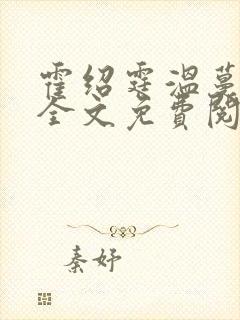 霍绍霆温蔓
全文免费阅
秦妤